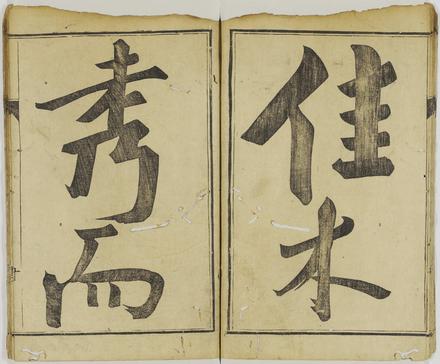 佳木
秀而